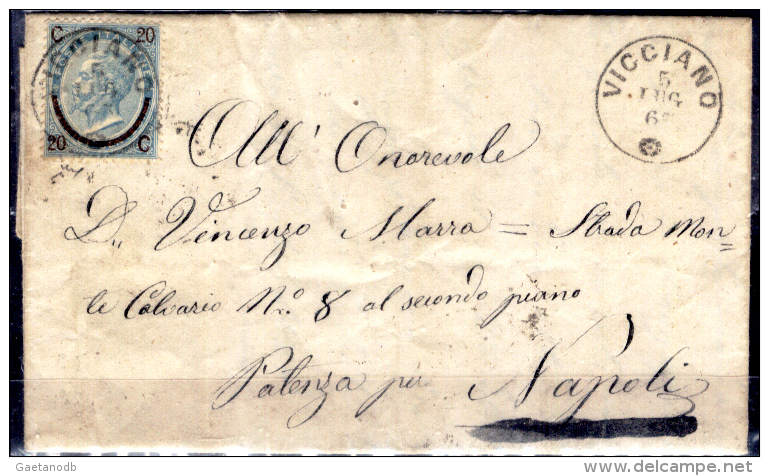 C 20
20 C
VICCIANO
5
LUG
All' Onorevole
D.. Vincenzo Marra = Strada Mon=
te Calvario N.º 8 al secondo piano
Patenza per Napoli
Gaetanodb
www.delcampe.net